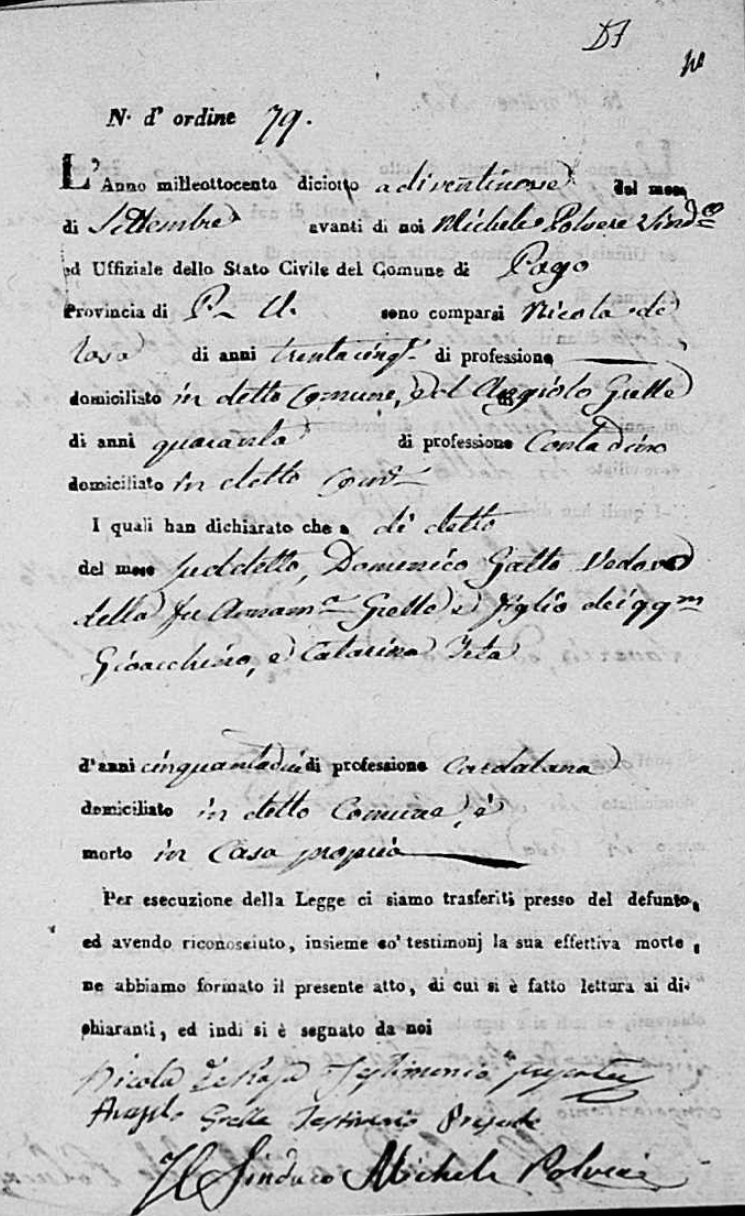 57
N. d' ordine 79.
L' Anno milleottocento diciotto a di ventinove del mese
di Settembre avanti di noi Michele Polvere Sind.co
ed Uffiziale dello Stato Civile del Comune di Pago
Provincia di P. U. sono comparsi Nicola de
Rosa di anni trentacinq.e di professione
domiciliato in detto Comune, ed Angiolo Grelle
di anni quaranta di professione Contadino
domiciliato in detto Com.e
I quali han dichiarato che a di detto
del mese suddetto, Domenico Gatto Vedovo
della fu Grello e figlio dei qqm
Gioacchino, e Catarina
d'anni di professione
domiciliato in detto Comune, è
morto in Casa propria
Per esecuzione della Legge ci siamo trasferiti presso del defunto,
ed avendo riconosciuto, insieme co' testimonj la sua effettiva morte,
ne abbiamo formato il presente atto, di cui si è fatto lettura ai di-
chiaranti, ed indi si è segnato da noi
Nicola De Rosa Testimonio
Angelo Grella
Il Sindaco Michele Polvere